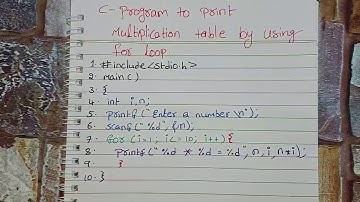 C - Program to print
multiplication table by using
for loop
1. #include<stdio.h>
2. main()
3. {
4. int i,n;
5. printf("Enter a number \n");
6. scanf("%d", &n);
7. for (i=1; i<=10; i++){
8. printf("%d * %d = %d", n, i, n*i);
9. }
10. }